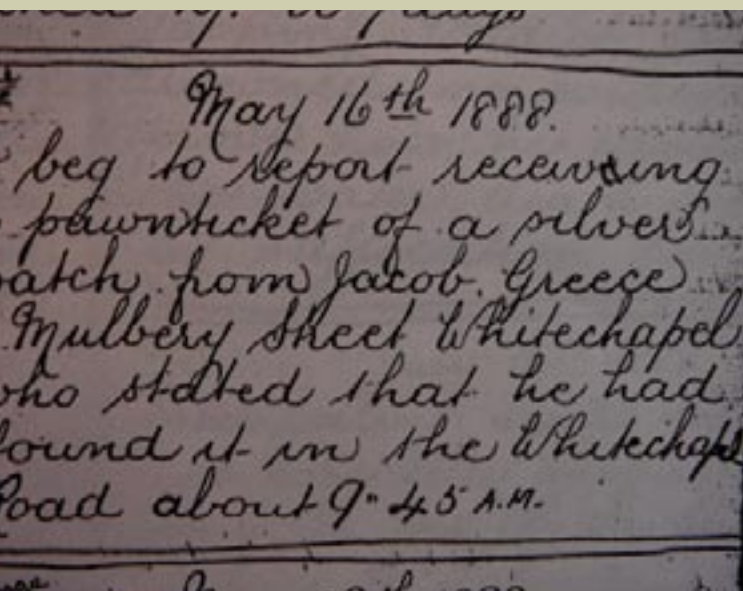 May 16th 1888.
beg to report receiving
pawnticket of a silver
atch from Jacob Greece
Mulbery Street Whitechapel
who stated that he had
found it in the Whitechapl
Road about 9.45 A.M.